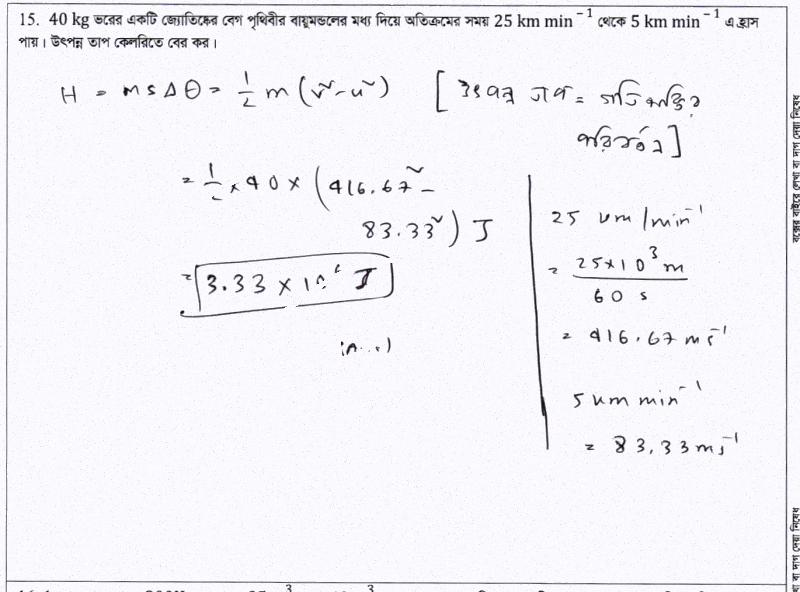 15. 40 kg ভরের একটি জ্যোতিষ্কের বেগ পৃথিবীর বায়ুমন্ডলের মধ্য দিয়ে অতিক্রমের সময় 25 km min⁻¹ থেকে 5 km min⁻¹ এ হ্রাস
পায়। উৎপন্ন তাপ কেলরিতে বের কর।
H = m s Δθ = 1/2 m (v² - u²) [উৎপন্ন তাপ = গতিশক্তির
পরিবর্তন]
= 1/2 × 40 × (416.67² -
83.33²) J
= 3.33 × 10⁶ J
25 km/min⁻¹
= 25×10³ m / 60 s
= 416.67 ms⁻¹
5 km min⁻¹
= 83.33 ms⁻¹
বক্সের বাইরে লেখা বা দাগ দেয়া নিষেধ
বা দাগ দেয়া নিষেধ